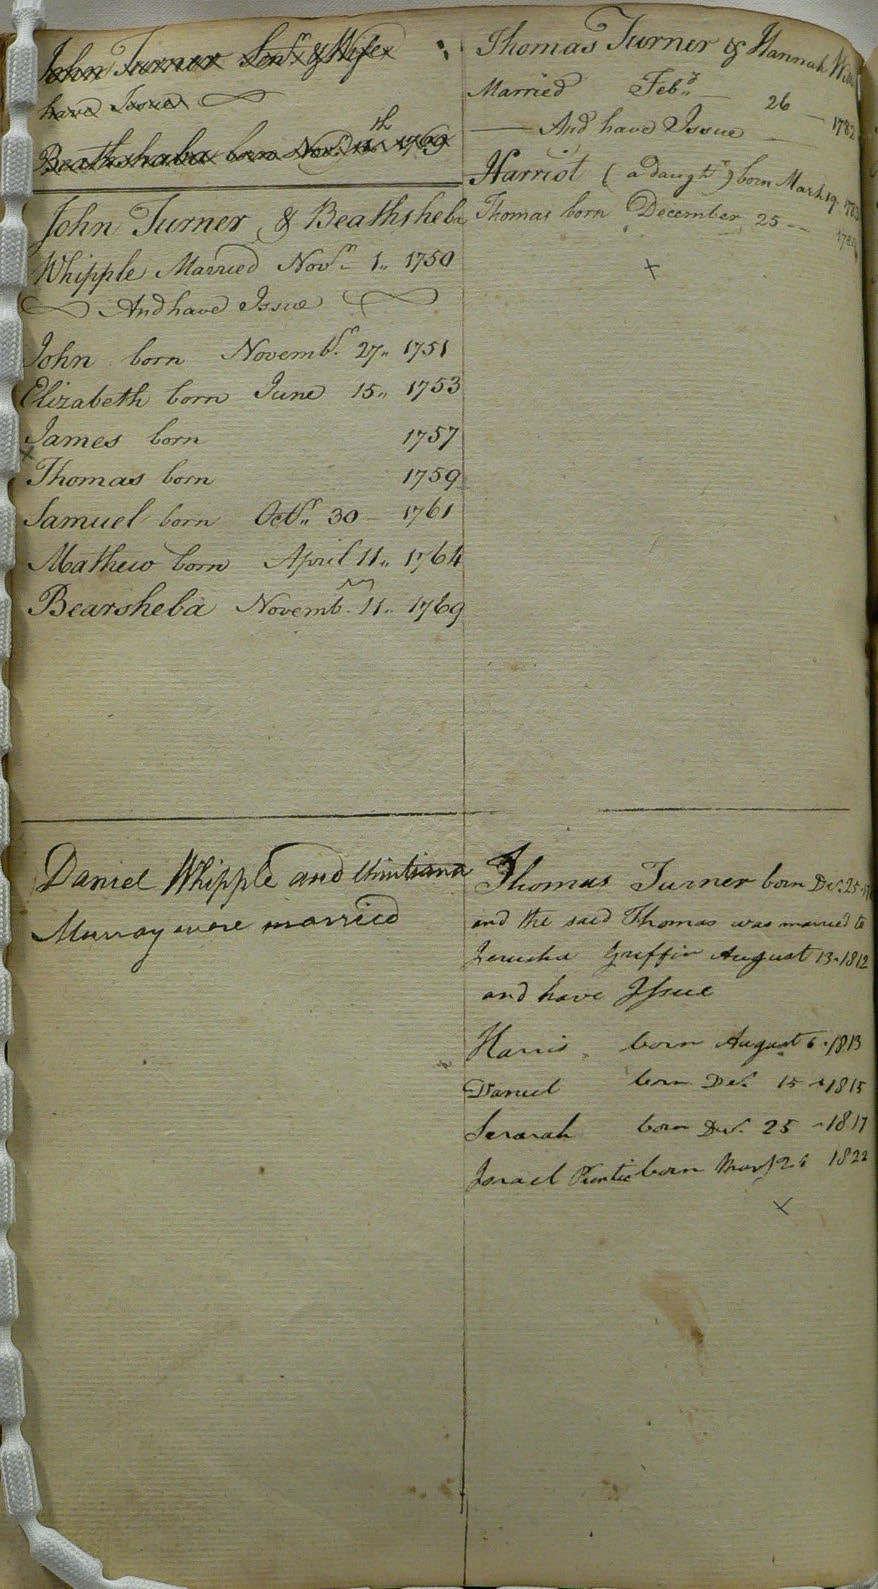 John Turner Senr & Wife
have Issue
Beathshaba born Novr 11th 1769
John Turner & Beathsheba
Whipple Married Novr 1,, 1750
And have Issue
John born Novembr 27,, 1751
Elizabeth born June 15,, 1753
James born 1757
x
Thomas born 1759
Samuel born Octr,, 30 - 1761
Mathew born April 11,, 1764
Bearsheba Novemb 11,, 1769
Thomas Turner & Hannah
Married Feby,, 26 - 1782
And have Issue
Harriot (a daughtr) born March 19
Thomas born December 25 -
x
Daniel Whipple and
Murray were married
Thomas Turner born Dec. 25
and the said Thomas was married to
Jerusha Griffin August 13 - 1812
and have Issue
Harris born August 6 - 1813
Daniel born Dec. 15 - 1815
Serarah born Dec. 25 - 1817
Israel born 26 1822
x